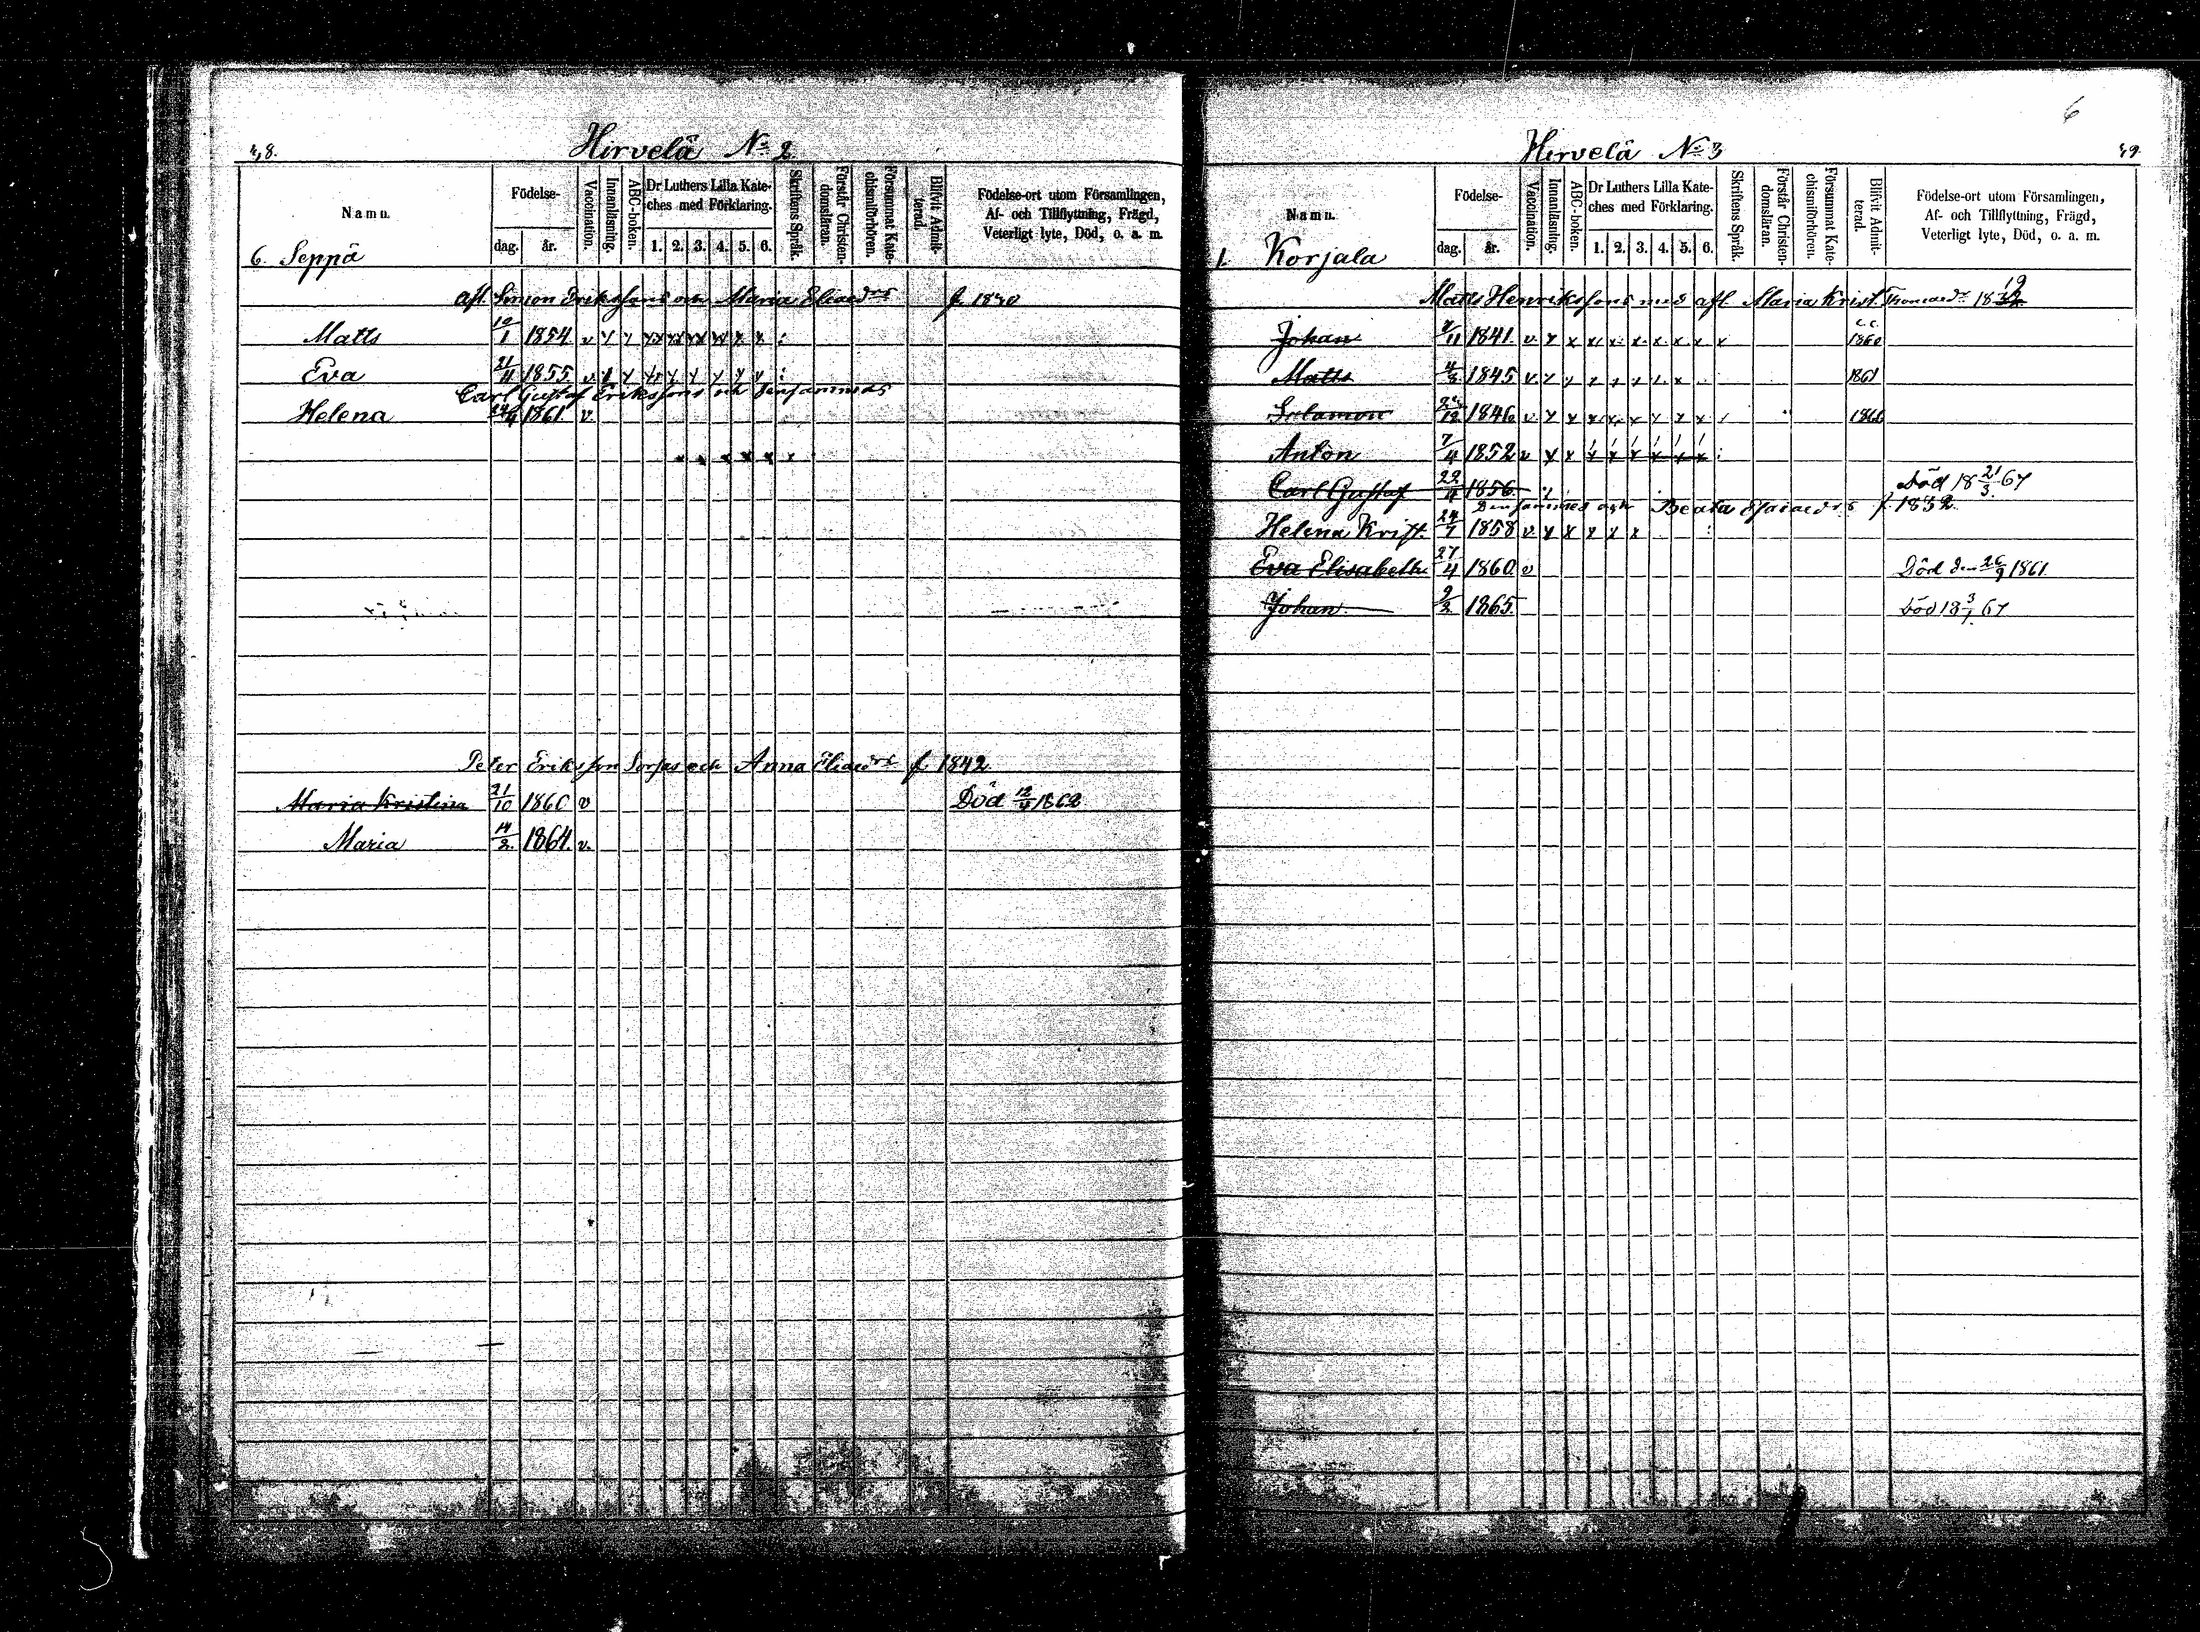 48.
Hirvelä No 2
Namn.
Födelse-
dag. år.
Vaccination.
Innanläsning.
ABC-boken.
Dr Luthers Lilla Kate-
ches med Förklaring.
1. 2. 3. 4. 5. 6.
Skriftens Språk.
Förstår Christen-
domsläran.
Försummat Kate-
chismiförhören.
Blifvit Admit-
terad.
Födelse-ort utom Församlingen,
Af- och Tillflyttning, Frägd,
Veterligt lyte, Död, o. a. m.
6. Seppä
afl. Simon Erikssons och Maria Eliaedrs f. 1830
Matts 1854 v
Eva 21/11 1855 v
Carl Gustaf Erikssons och densammas
Helena 1861. v.
Peter Eriksson Sorsas och Anna Eliaedrs f. 1842
Maria Kristina 21/10 1860 v Död 12/4 1862
Maria 14/2. 1864. v.
6
Hirvelä No 3
49.
Namn.
Födelse-
dag. år.
Vaccination.
Innanläsning.
ABC-boken.
Dr Luthers Lilla Kate-
ches med Förklaring.
1. 2. 3. 4. 5. 6.
Skriftens Språk.
Förstår Christen-
domsläran.
Försummat Kate-
chismiförhören.
Blifvit Admit-
terad.
Födelse-ort utom Församlingen,
Af- och Tillflyttning, Frägd,
Veterligt lyte, Död, o. a. m.
1. Korjala
Matts Henrikssons med afl. Maria Krist. Thomaedr
Johan 1841. v 1860
Matts 4/3 1845 v 1861
Salamon 1846 v
Anton 7/4 1852 v
Carl Gustaf 1856. Död 18 21/3. 67
Densammes och Beata Esaiaedrs f. 1832.
Helena Krist. 24/7 1858 v
Eva Elisabeth 27/4 1860 v Död den 26/9 1861.
Johan 9/2 1865. Död 18 3/1. 67